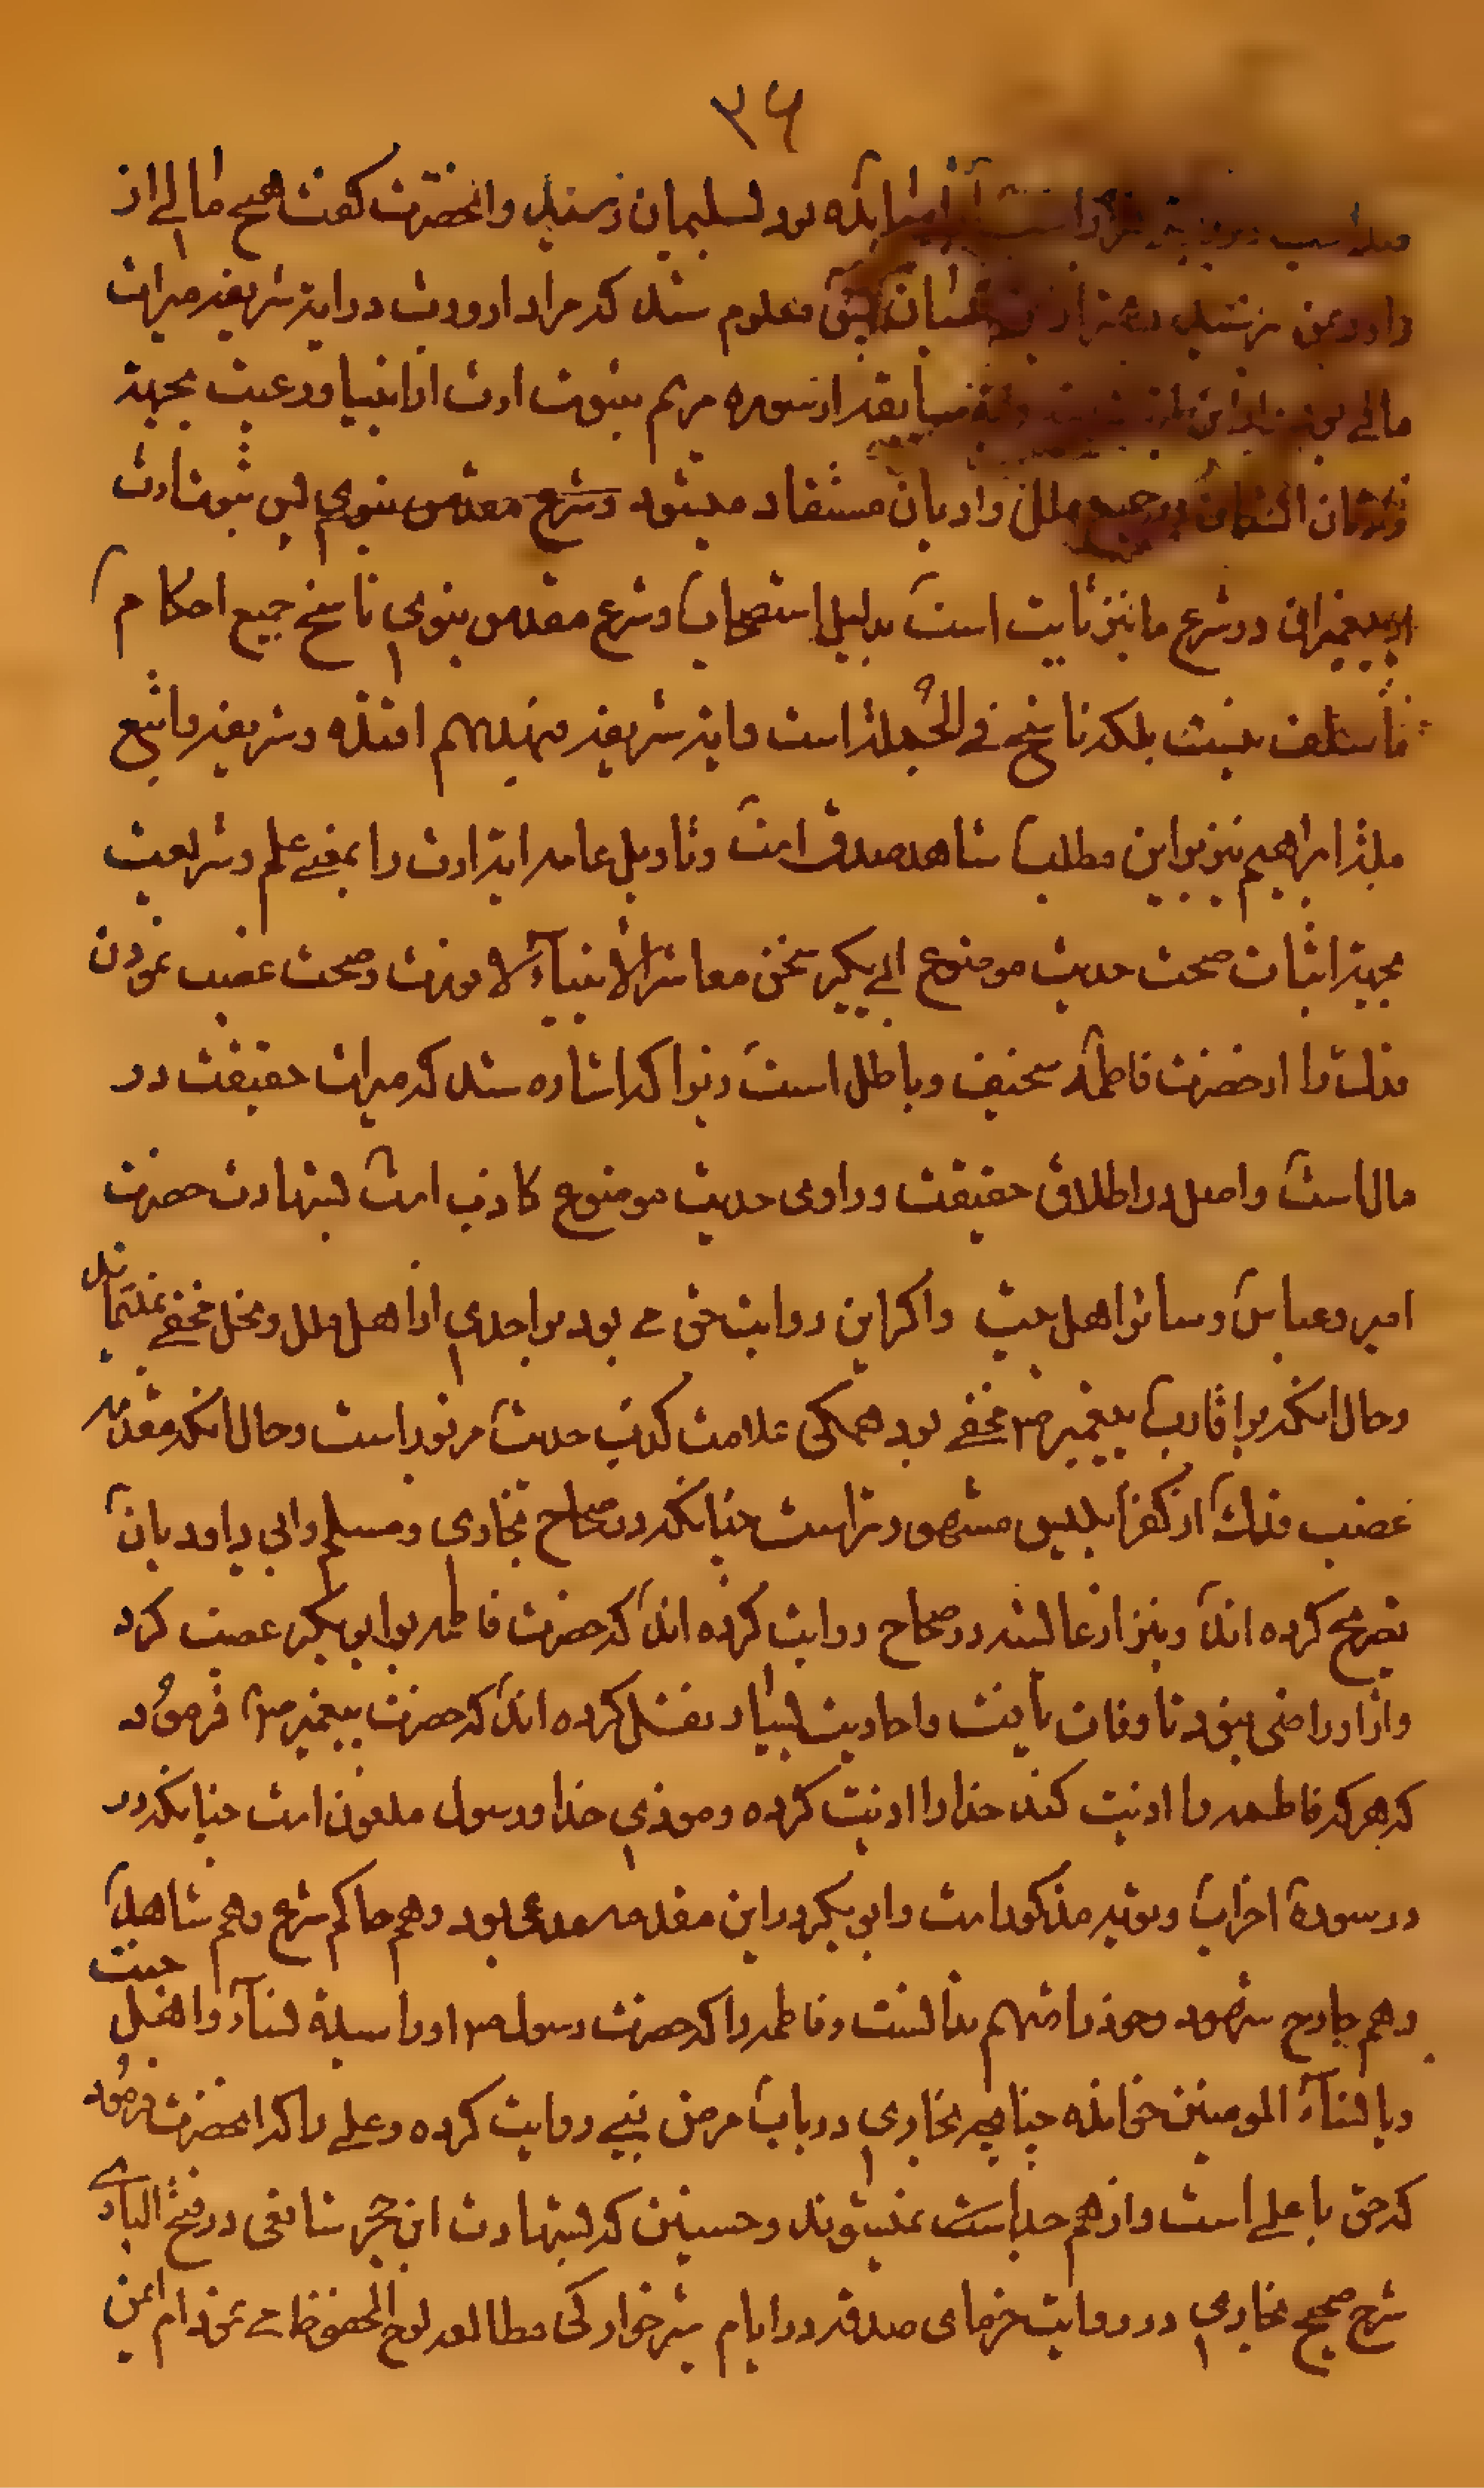 ۳۶
بود لسلیمان رسید و انحضرت کفت هیچ مالی از
داود بمن نرسید معلوم شد که مراد از ورث در ایه شریفه میراث
مالی بود سابقه از سوره مریم بثبوت ارث از انبیا و رعیت بجهة
جمیع ملل و ادیان مستفاد میشود و شرع مقدس نبوی پس ثبوت ارث
از پیغمبران در شرع ما نیز ثابت است بدلیل استصحاب و شرع مقدس نبوی ناسخ جمیع احکام
ما سلف نیست بلکه ناسخ فی الجمله است و ایه شریفه فبهدیهم اقتده و شریفه واتبع
ملة ابراهیم نیز بر این مطلب شاهد صدق است و تاویل عامه ایة ارث را بمعنی علم و شریعت
بجهة اثبات صحت حدیث موضوع ابی بکر نحن معاشر الانبیاء لا نورث و صحت غصب نمودن
فدک را از حضرت فاطمه سخیف و باطل است زیرا که اشاره شد که میراث حقیقت در
مال است و اصل در اطلاق حقیقت و راوی حدیث موضوع کاذب است بشهادت حضرت
امیر و عباس و سائر اهل بیت و اگر این روایت حق می بود بر احدی از اهل ملل و نحل مخفی نمیماند
و حال انکه بر اقارب پیغمبر ص مخفی بود همکی علامت کذب حدیث مزبور است و حال انکه مقدمه
غصب فدک از کفر ابلیس مشهورتر است چنانکه در صحاح بخاری و مسلم و ابی داود بان
تصریح کرده اند و نیز از عائشه در صحاح روایت کرده اند که حضرت فاطمه بر ابو بکر غضب کرد
و از او راضی نبود تا وفات یافت و احادیث بسیار نقل کرده اند که حضرت پیغمبر ص فرمود
که هر که فاطمه را اذیت کند خدا را اذیت کرده و موذی خدا و رسول ملعون است چنانکه در
در سورة احزاب و توبه مذکور است و ابو بکر در این مقدمه مدعی بود و هم حاکم شرع و هم شاهد
و هم جارح شهود و خود را متهم ندانست و فاطمه را که حضرت رسول ص او را سیدة نساء اهل جنت
و یا نساء المومنین خوانده چنانچه بخاری در باب مرض نبی روایت کرده و علی را که انحضرت فرمود
که حق با علی است و از هم جدا نمیشوند و حسنین که بشهادت ابن حجر شافعی در فتح الباری
شرح صحیح بخاری در روایت خرمای صدقه در ایام شیرخوارکی مطالعه لوح المحفوظ می نمود ام ایمن